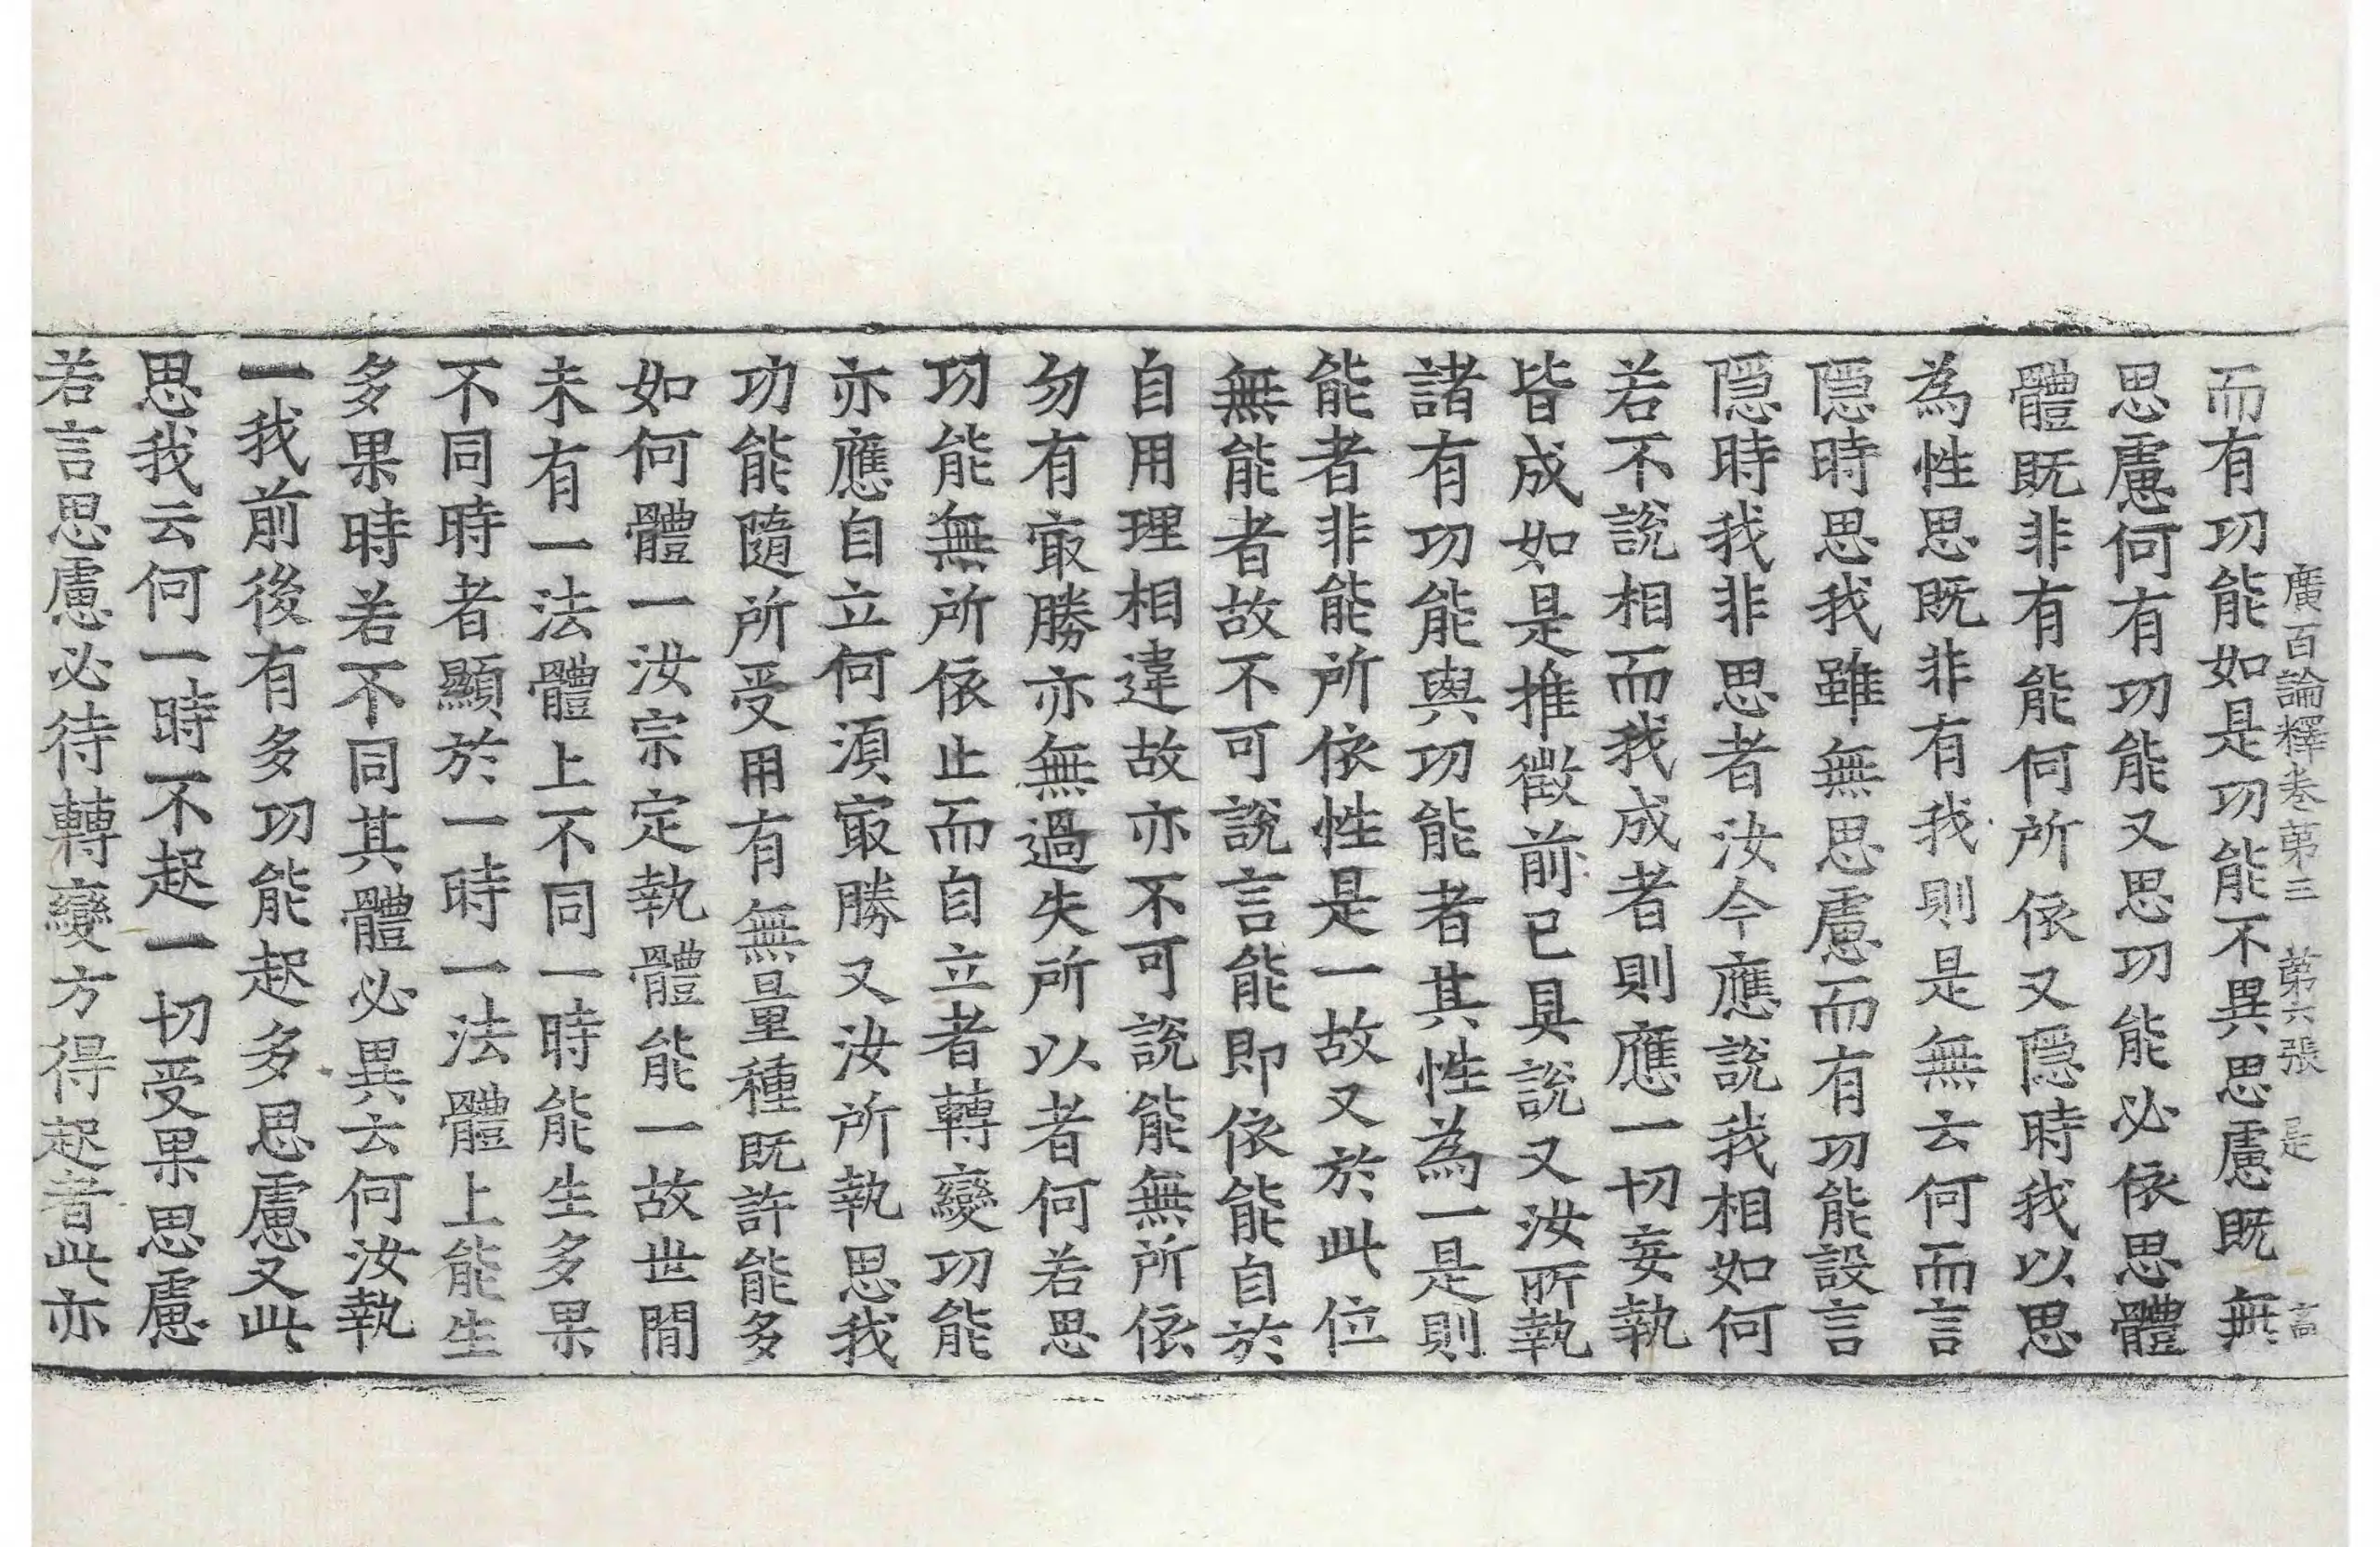 廣百論釋卷第三 第六張 是
而有功能如是功能不異思慮既無
思慮何有功能又思功能必依思體
體既非有能何所依又隱時我以思
為性思既非有我則是無云何而言
隱時思我雖無思慮而有功能設言
隱時我非思者汝今應說我相如何
若不說相而我成者則應一切妄執
皆成如是推徵前已具說又汝所執
諸有功能與功能者其性為一是則
能者非能所依性是一故又於此位
無能者故不可說言能即依能自於
自用理相違故亦不可說能無所依
勿有冣勝亦無過失所以者何若思
功能無所依止而自立者轉變功能
亦應自立何須冣勝又汝所執思我
功能隨所受用有無量種既許能多
如何體一汝宗定執體能一故世間
未有一法體上不同一時能生多果
不同時者顯於一時一法體上能生
多果時若不同其體必異云何汝執
一我前後有多功能起多思慮又此
思我云何一時不起一切受果思慮
若言思慮必待轉變方得起者此亦